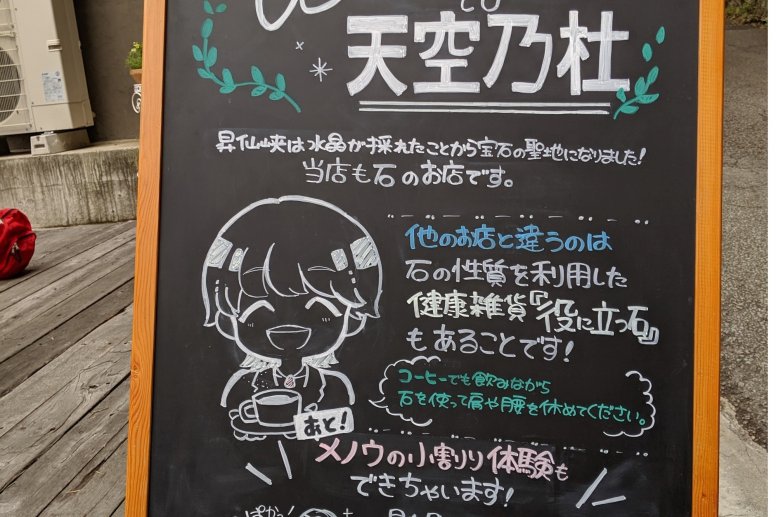 天空乃杜
昇仙峡は水晶が採れたことから宝石の聖地になりました!
当店も石のお店です。
他のお店と違うのは
石の性質を利用した
健康雑貨『役に立つ石』
もあることです!
コーヒーでも飲みながら
石を使って肩や腰を休めてください。
あと!
メノウの小割り体験も
できちゃいます!
ぱかっ!